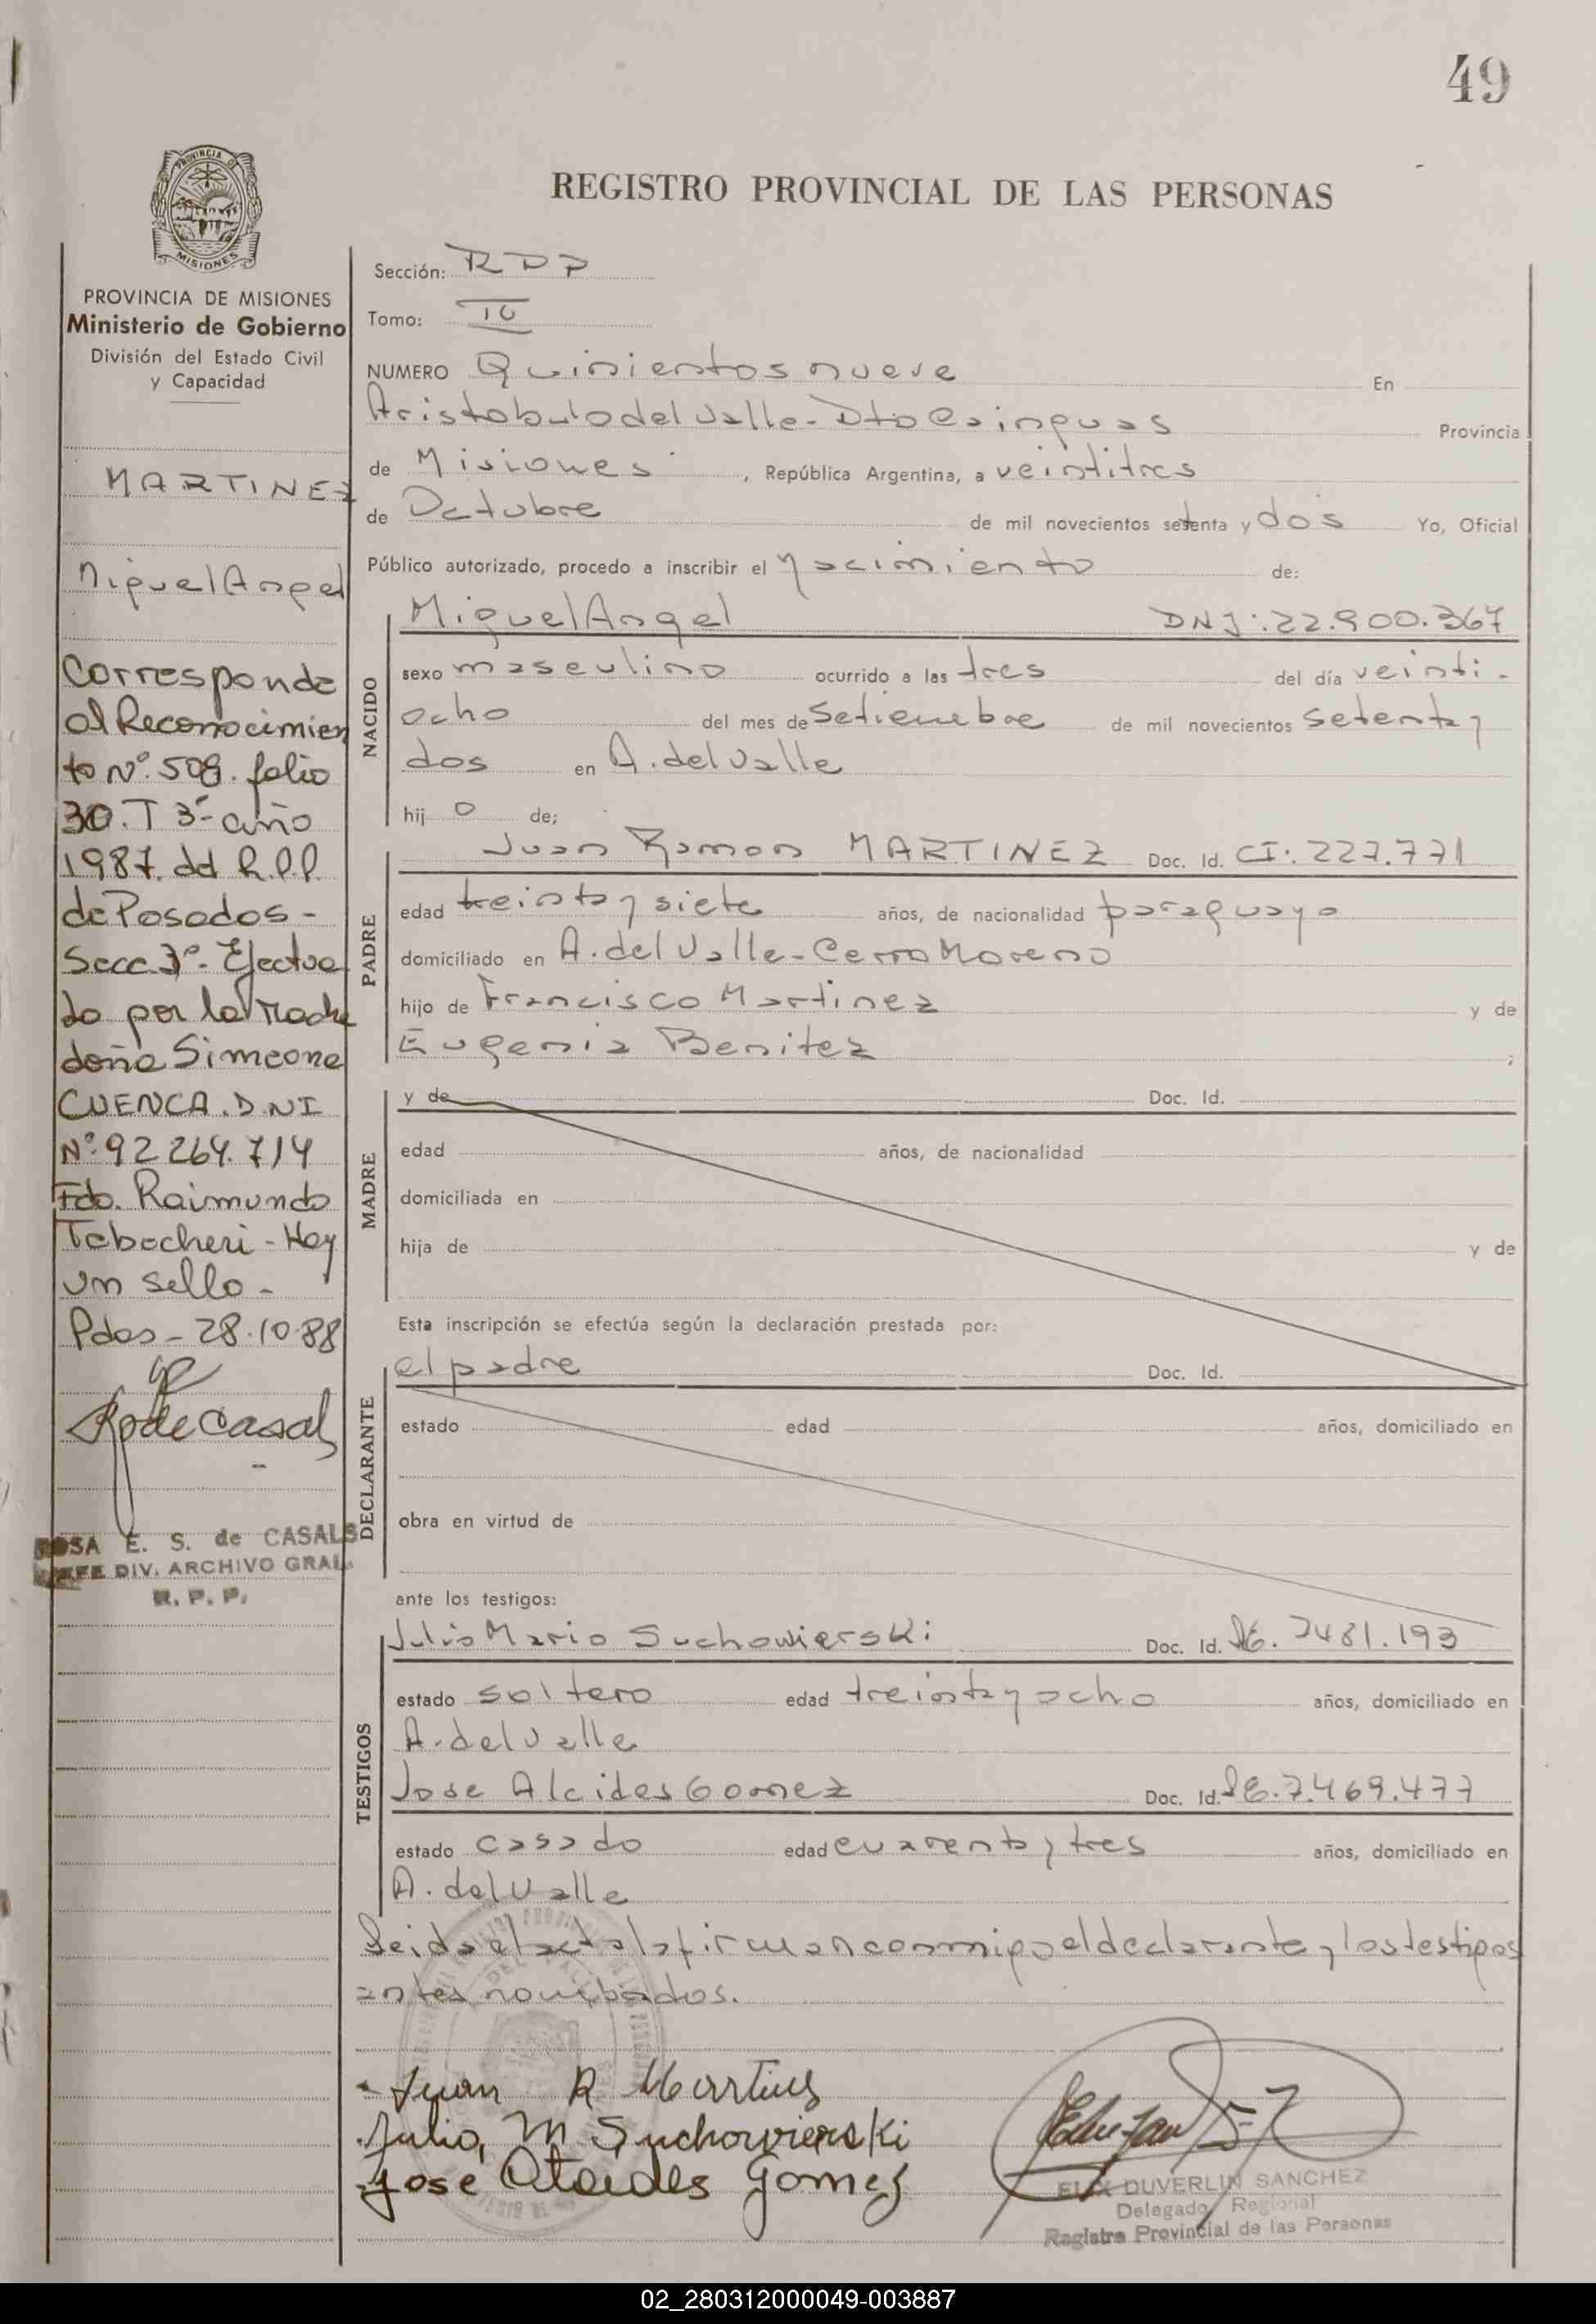 49
REGISTRO PROVINCIAL DE LAS PERSONAS
PROVINCIA DE MISIONES
Ministerio de Gobierno
División del Estado Civil
y Capacidad
MARTINEZ
Miguel Angel
Corresponde
al Reconocimien
to Nº. 509. folio
30. T 3º- año
1987. del R.P.P.
de Posadas -
Secc 3º- Efectua
do por la Madre
doña Simeona
CUENCA. D.NI
Nº: 92 264.714
Fdo. Raimundo
Tabocheri - Hay
un sello -
Pdas - 28.10.88
R de Casals
ROSA E. S. de CASALS
JEFE DIV. ARCHIVO GRAL.
R. P. P.
Sección: RDP
Tomo:
NUMERO Quinientos nueve En
Aristobulo del Valle - Dto Cainguas Provincia
de Misiones, República Argentina, a veintitres
de Octubre de mil novecientos setenta y dos Yo, Oficial
Público autorizado, procedo a inscribir el Nacimiento de:
NACIDO
Miguel Angel DNI: 22.900.367
sexo masculino ocurrido a las tres del día veinti-
ocho del mes de Setiembre de mil novecientos setenta y
dos en A. del Valle
hij o de;
PADRE
Juan Ramon MARTINEZ Doc. Id. CI: 227.771
edad treinta y siete años, de nacionalidad paraguayo
domiciliado en A. del Valle - Cerro Moreno
hijo de Francisco Martinez y de
Eugenia Benitez ;
MADRE
y de Doc. Id.
edad años, de nacionalidad
domiciliada en
hija de y de
Esta inscripción se efectúa según la declaración prestada por:
DECLARANTE
el padre Doc. Id.
estado edad años, domiciliado en
obra en virtud de
ante los testigos:
TESTIGOS
Julio Mario Suchowierski Doc. Id. LE. 7481.193
estado soltero edad treinta y ocho años, domiciliado en
A. del Valle
Jose Alcides Gomez Doc. Id. LE. 7.469.477
estado casado edad cuarenta y tres años, domiciliado en
A. del Valle
Leida el acta la firman conmigo el declarante y los testigos
antes nombrados.
Juan R Martinez
Julio M Suchowierski
Jose Alcides Gomez
DUVERLIN SANCHEZ
Delegado Regional
Registro Provincial de las Personas
02_280312000049-003887